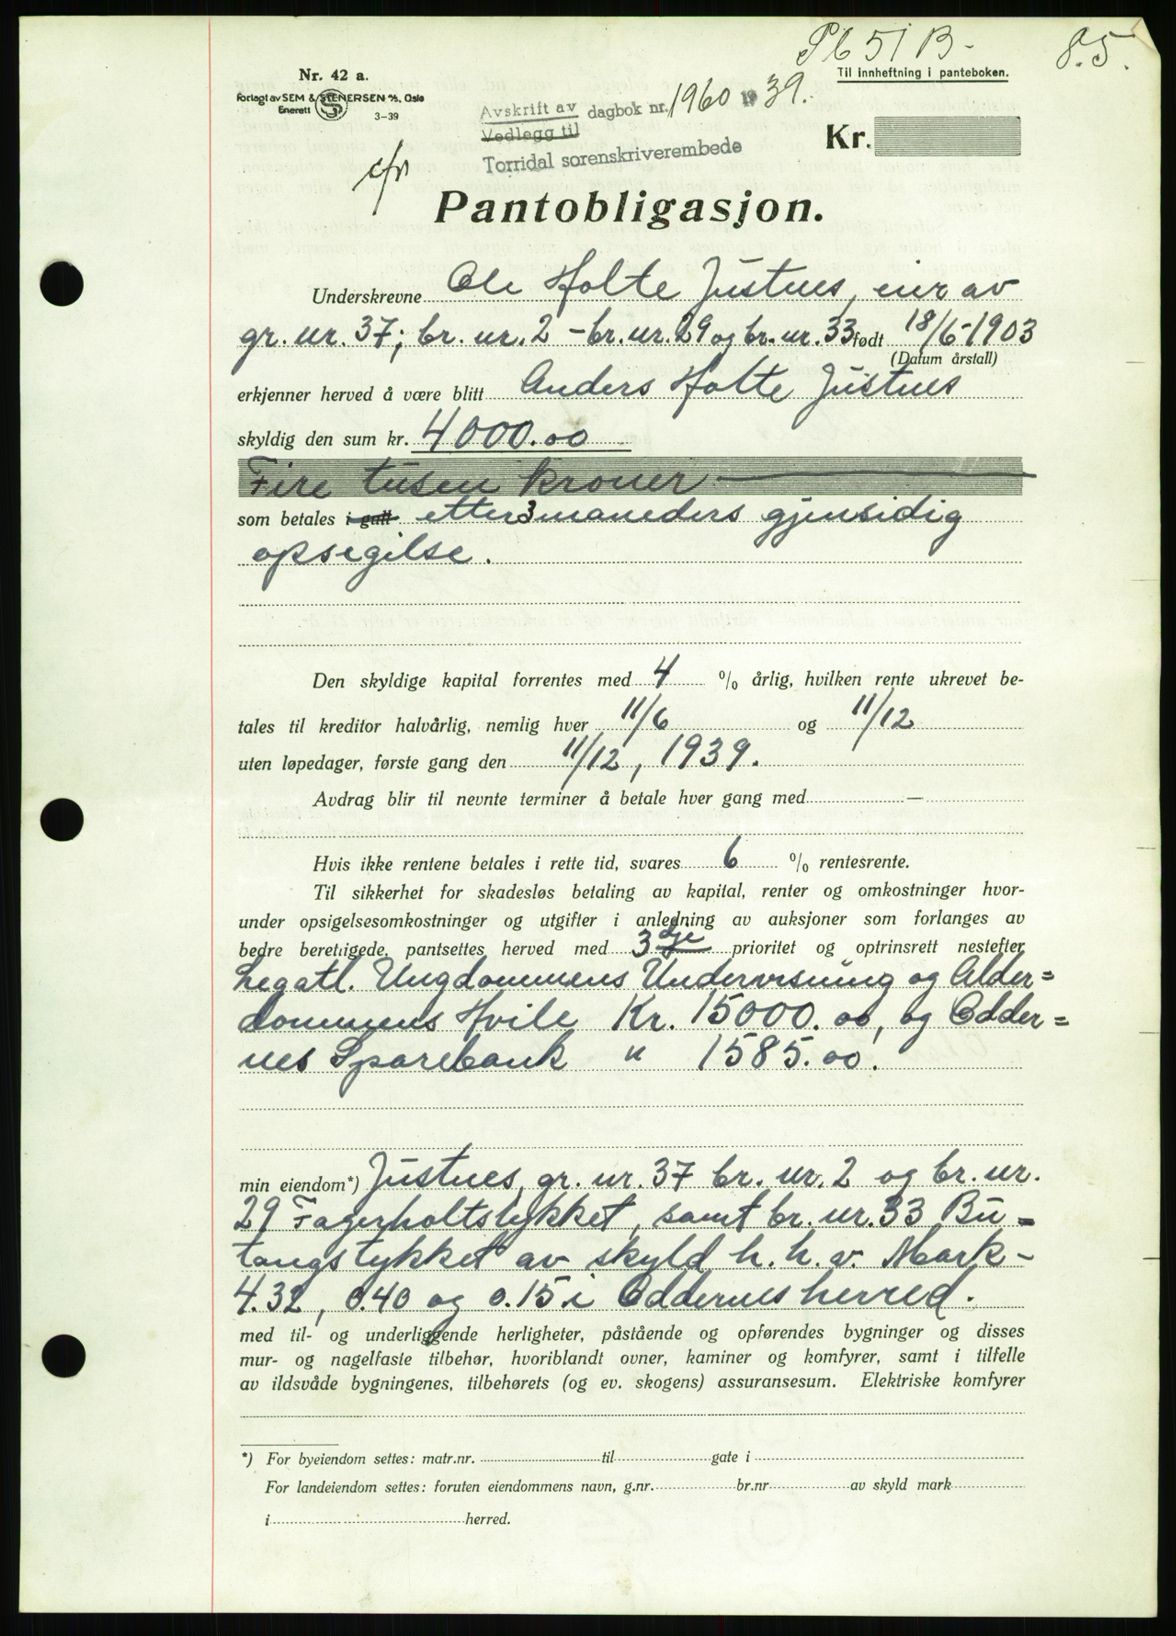 Pb 51 B-
85.
Nr. 42 a.
Til innheftning i panteboken.
Forlagt av SEM & STENERSEN A/S, Oslo
Enerett
3-39
Avskrift av
Vedlegg til
dagbok nr. 1960 1939.
Torridal sorenskriverembede
Kr.
Pantobligasjon.
Underskrevne Ole Holte Justnes, eier av
gr. nr. 37, br. nr. 2 - br. nr. 29 og br. nr. 33 født 18/6-1903
(Datum årstall)
erkjenner herved å være blitt Anders Holte Justnes
skyldig den sum kr. 4000.00
Fire tusen kroner
som betales i gull etter 3 maneders gjensidig
opsigilse.
Den skyldige kapital forrentes med 4 % årlig, hvilken rente ukrevet be-
tales til kreditor halvårlig, nemlig hver 11/6 og 11/12
uten løpedager, første gang den 11/12, 1939.
Avdrag blir til nevnte terminer å betale hver gang med —
Hvis ikke rentene betales i rette tid, svares 6 % rentesrente.
Til sikkerhet for skadesløs betaling av kapital, renter og omkostninger hvor-
under opsigelsesomkostninger og utgifter i anledning av auksjoner som forlanges av
bedre berettigede, pantsettes herved med 3dje prioritet og optrinsrett nestefter
Legatl. Ungdommens Undervisning og Alder=
dommens Hvile Kr. 15000.00, og Odder=
nes Sparebank " 1585.00.
min eiendom*) Justnes, gr. nr. 37 br. nr. 2 og br. nr.
29 Fagerholtstykket, samt br. nr. 33 Bu=
tangstykket av skyld h. h. v. Mark-
4.32, 0.40 og 0.15 i Oddernes herred.
med til- og underliggende herligheter, påstående og opførendes bygninger og disses
mur- og nagelfaste tilbehør, hvoriblandt ovner, kaminer og komfyrer, samt i tilfelle
av ildsvåde bygningenes, tilbehørets (og ev. skogens) assuransesum. Elektriske komfyrer
*) For byeiendom settes: matr.nr. til gate i
For landeiendom settes: foruten eiendommens navn, g.nr. br.nr av skyld mark
i herred.